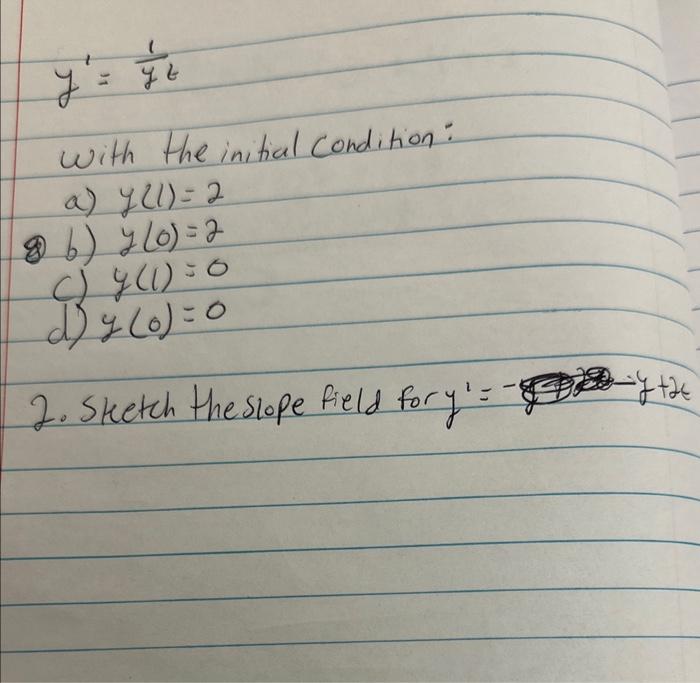 y' = 1/yt
with the initial condition:
a) y(1) = 2
b) y(0) = 2
c) y(1) = 0
d) y(0) = 0
2. Sketch the slope field for y' = -y + 2t